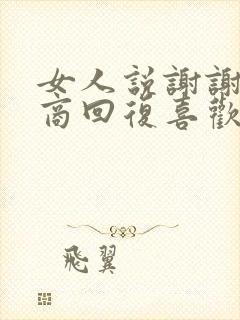 女人説謝謝
商回復喜歡
飛翼